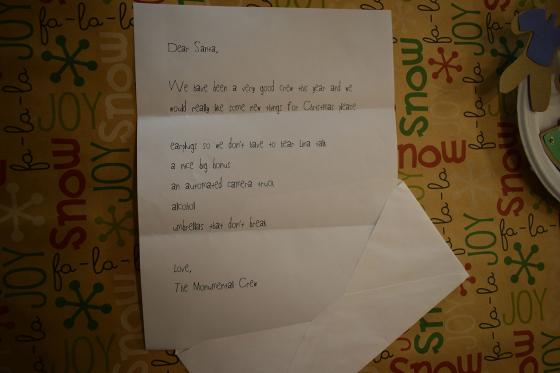 Dear Santa,
We have been a very good crew this year and we
would really like some new things for Christmas please
earplugs so we don't have to hear Lina talk
a nice big bonus
an automated camera truck
alcohol
umbrellas that don't break
Love,
The Monumental Crew
fa-la-la
JOY
snow
fa-la-la
JOY
snow
fa-la-la
JOY
snow
fa-la-la
JOY
snow